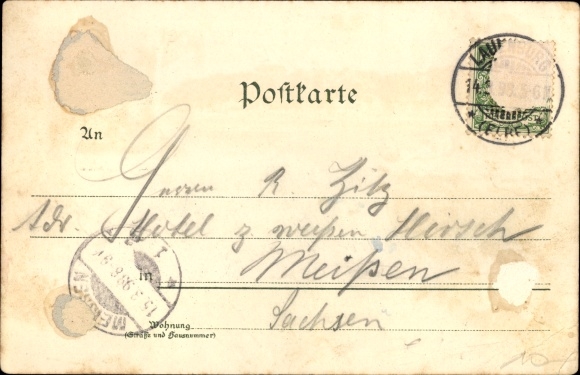 LAUENBURG
14. 98.3-6N.
* (ELBE) *
Postkarte
An
Herrn R. Zilz
Adr. Hotel z weißen Hirsch
in Meißen
MEISSEN
Sachsen
Wohnung
(Straße und Hausnummer)